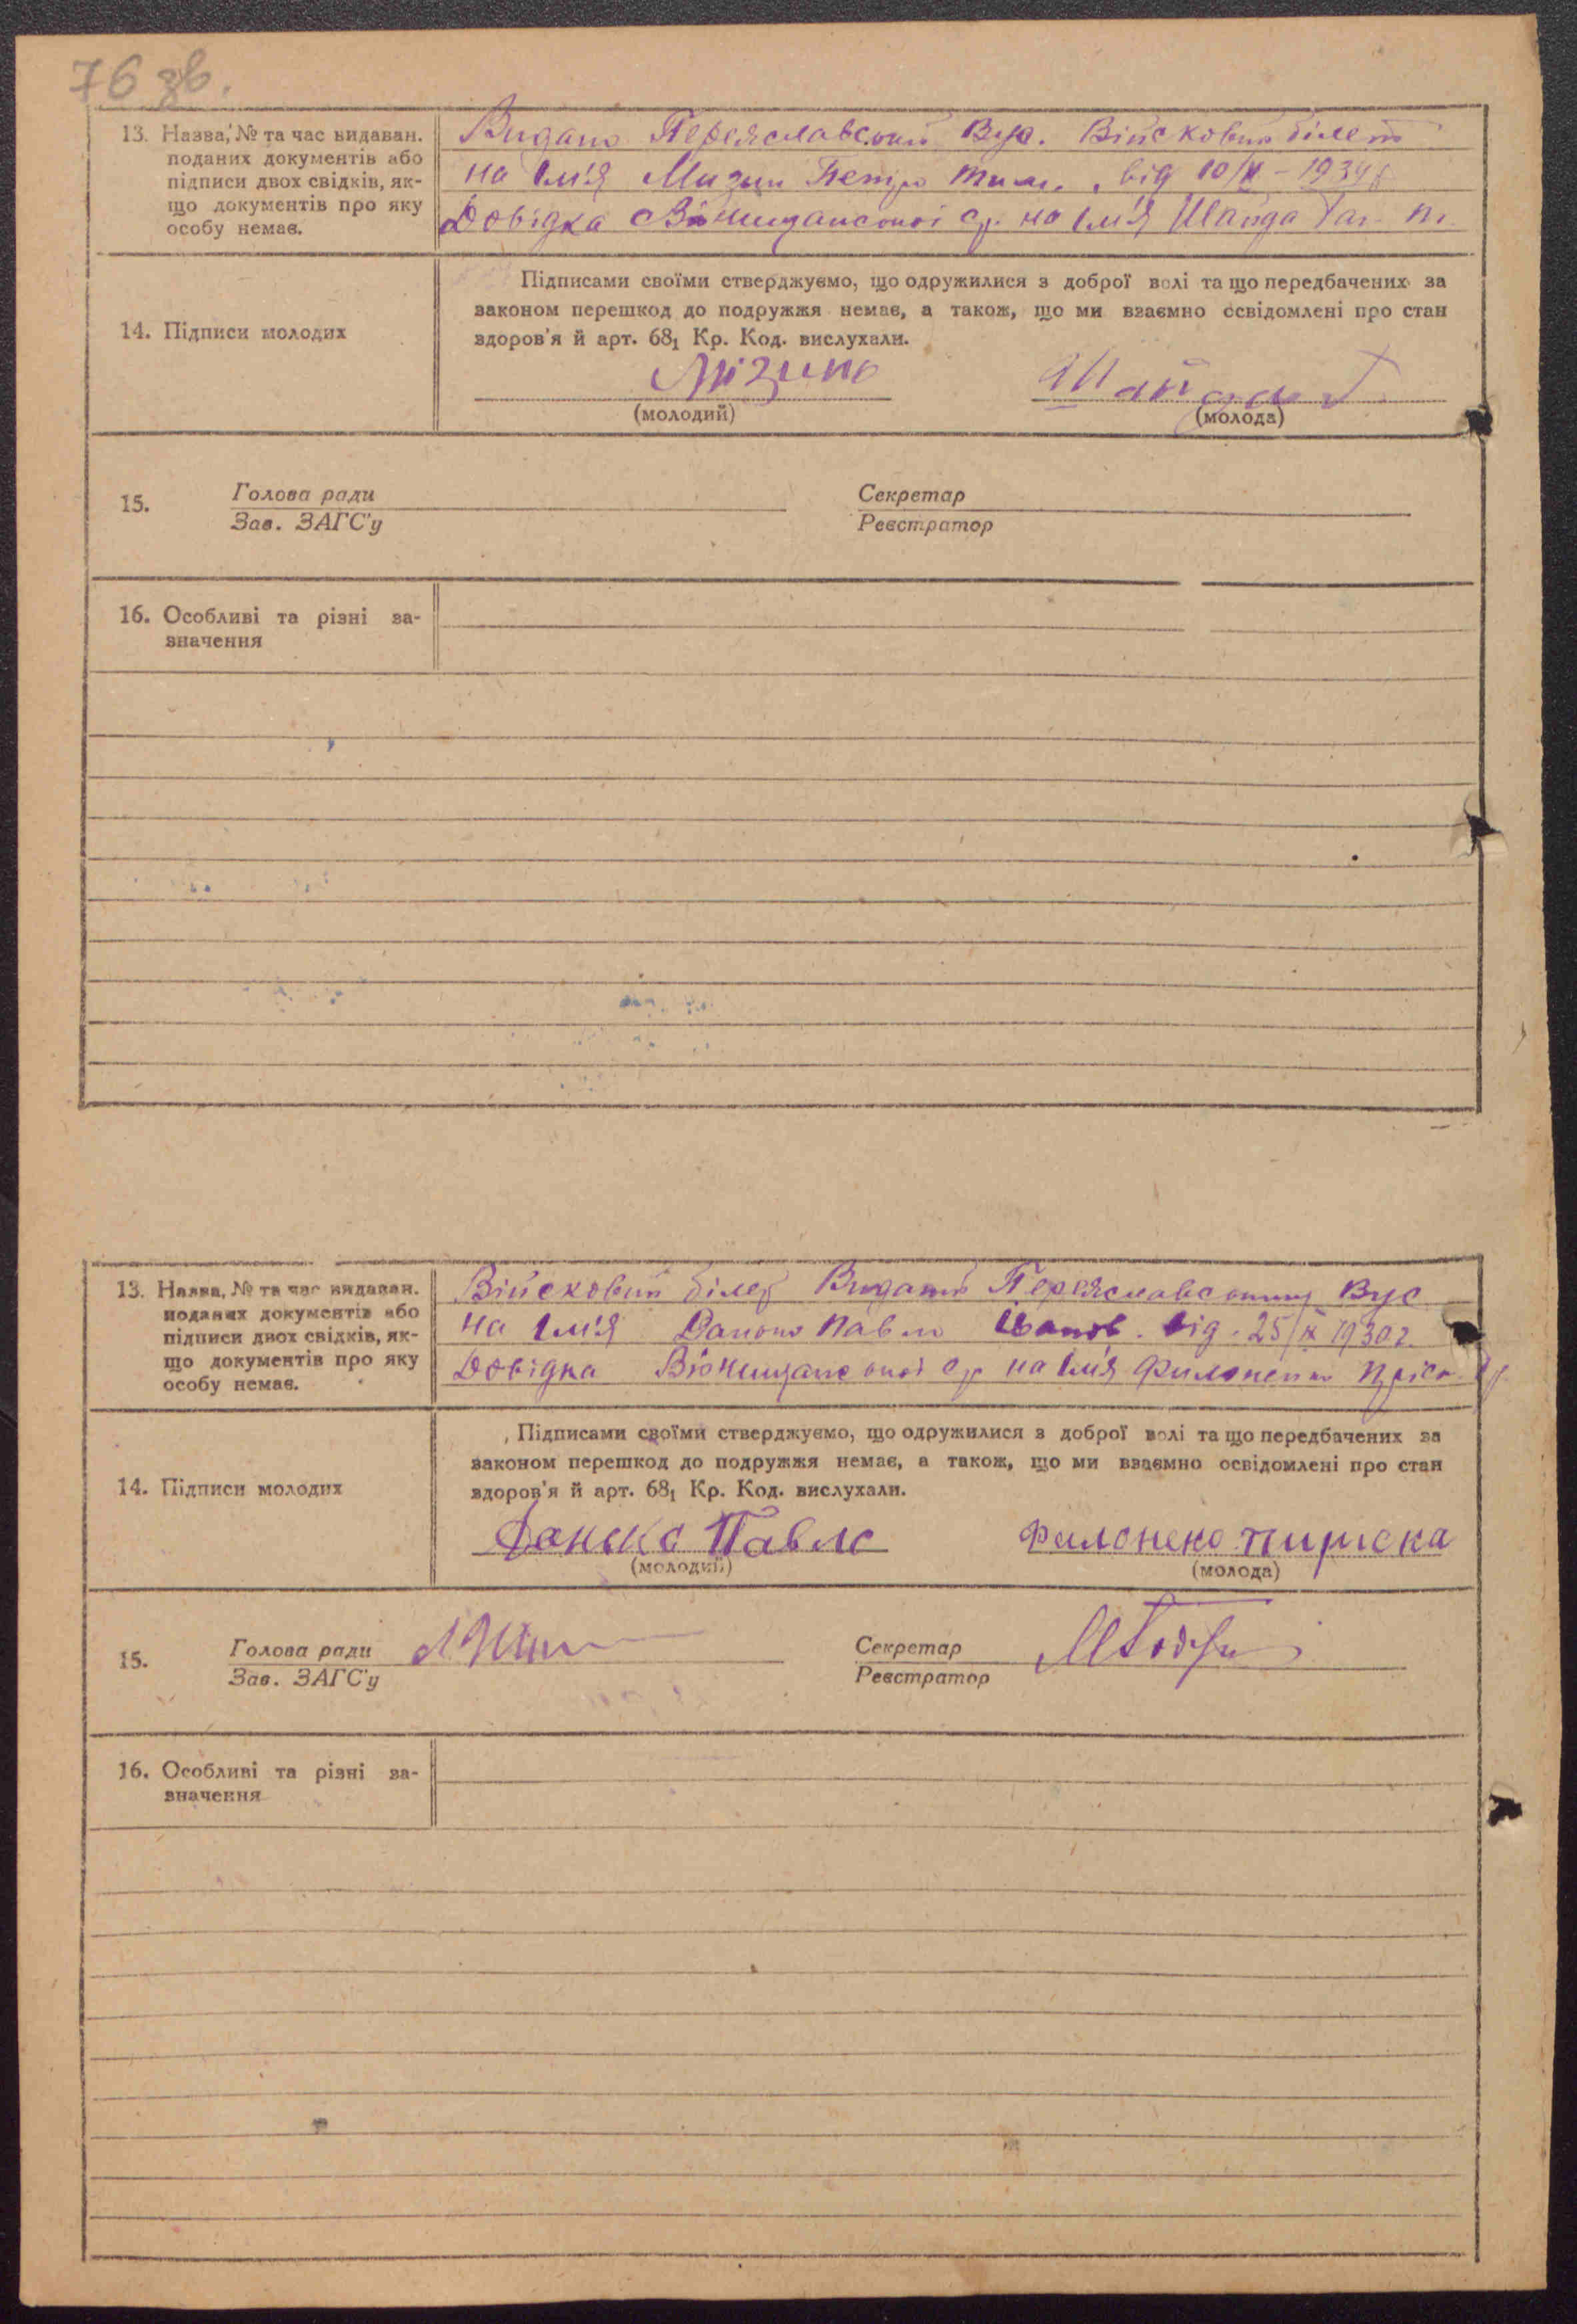 76 зв.
13. Назва, № та час видаван.
поданих документів або
підписи двох свідків, як-
що документів про яку
особу немає.
Видано Переяславський Вус. Військовий білет
на Імʼя Мизин Петро Тим. від 10/X - 1934
Довідка с/р. на Імʼя Шайда
14. Підписи молодих
Підписами своїми стверджуємо, що одружилися з доброї волі та що передбачених за
законом перешкод до подружжя немає, а також, що ми взаємно освідомлені про стан
здоров'я й арт. 68₁ Кр. Код. вислухали.
Мізинь
Шайда Т.
(молодий)
(молода)
15.
Голова ради
Зав. ЗАГС'у
Секретар
Реєстратор
16. Особливі та різні за-
значення
13. Назва, № та час видаван.
поданих документів або
підписи двох свідків, як-
що документів про яку
особу немає.
Військовий білет Видано Переяславським Вус
на Імʼя Данько Павло Іванов. від. 25/IX 1930 г.
Довідка с/р на Імʼя Филоненко
14. Підписи молодих
Підписами своїми стверджуємо, що одружилися з доброї волі та що передбачених за
законом перешкод до подружжя немає, а також, що ми взаємно освідомлені про стан
здоров'я й арт. 68₁ Кр. Код. вислухали.
Данько Павло
Филонеко Пириска
(молодий)
(молода)
15.
Голова ради
Зав. ЗАГС'у
Секретар
Реєстратор
16. Особливі та різні за-
значення